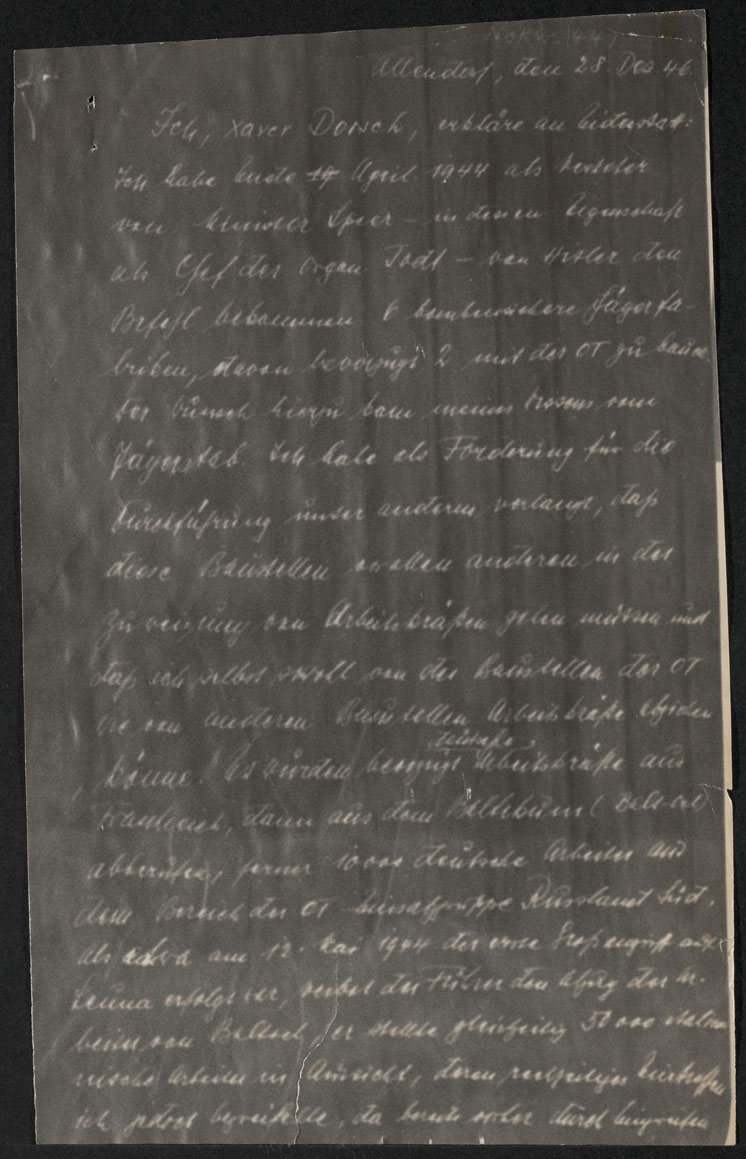 Allendorf, den 28. Dez 46.
Ich, Xaver Dorsch, erkläre an Eidesstatt:
Ich habe Ende April 1944 als Vertreter
von Minister Speer – in dessen Eigenschaft
als Chef der Organ. Todt – von Hitler den
Befehl bekommen 6 bombensichere Jägerfa-
briken, davon bevorzugt 2 mit der OT zu bauen
Der Wunsch hierzu kam meines Wissens vom
Jägerstab. Ich habe als Forderung für die
Durchführung unter anderem verlangt, daß
diese Baustellen anderen in der
Zuweisung von Arbeitskräften gehen müssen und
daß ich selbst sowohl von den Baustellen der OT
wie von anderen Baustellen Arbeitskräfte
könne. Es wurden bevorzugt Arbeitskräfte aus
Frankreich, dann aus dem
abberufen, ferner 10000 deutsche Arbeiter aus
dem Bereich der OT Einsatzgruppe Russland Süd.
Als etwa am 12. Mai 1944 der erste Großangriff auf
Leuna erfolgt war, verbot der Führer den Abzug der Ar-
beiter von er stellte gleichzeitig 50000 italie-
nische Arbeiter in Aussicht, deren rechtzeitiges Eintreffen
ich jedoch bezweifelte, da bereits vorher durch Eingreifen